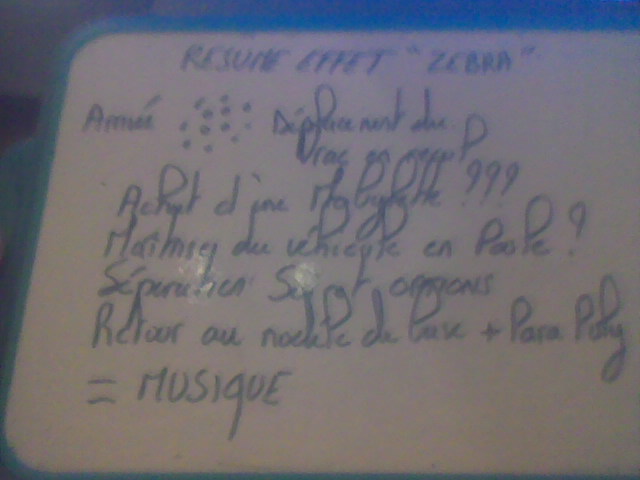 RESUME EFFET "ZEBRA"
Arrivée Déplacement du
vrac en
Achat d'une Mobylette ???
Maîtrise du véhicule en Poste ?
Séparation OPTIONS
Retour au modèle de base + Para Poly
= MUSIQUE